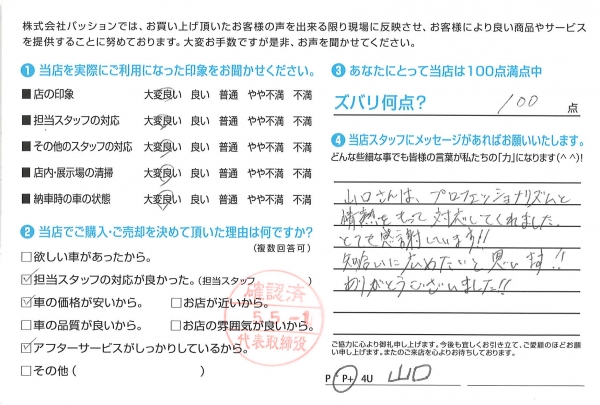 株式会社パッションでは、お買い上げ頂いたお客様の声を出来る限り現場に反映させ、お客様により良い商品やサービス
を提供することに努めております。大変お手数ですが是非、お声を聞かせてください。
① 当店を実際にご利用になった印象をお聞かせください。
■ 店の印象 大変良い 良い 普通 やや不満 不満
■ 担当スタッフの対応 大変良い 良い 普通 やや不満 不満
■ その他のスタッフの対応 大変良い 良い 普通 やや不満 不満
■ 店内・展示場の清掃 大変良い 良い 普通 やや不満 不満
■ 納車時の車の状態 大変良い 良い 普通 やや不満 不満
② 当店でご購入・ご売却を決めて頂いた理由は何ですか?
(複数回答可)
□欲しい車があったから。
☑担当スタッフの対応が良かった。(担当スタッフ
☑車の価格が安いから。 □お店が近いから。
□車の品質が良いから。 □お店の雰囲気が良いから。
☑アフターサービスがしっかりしているから。
□その他( )
確認済
5.5.-1
代表取締役
③ あなたにとって当店は100点満点中
ズバリ何点? 100 点
④ 当店スタッフにメッセージがあればお願いいたします。
どんな些細な事でも皆様の言葉が私たちの「力」になります(^ ^)!
山口さんは、プロフェッショナリズムと
情熱をもって対応してくれました。
とても感謝しています!!
知合いに広めたいと思います!!
ありがとうございました!!
ご協力に心より御礼申し上げます。今後も宜しくお引き立て、ご愛顧のほどお願
い申し上げます。またのご来店を心よりお待ちしております。
P P+ 4U 山口